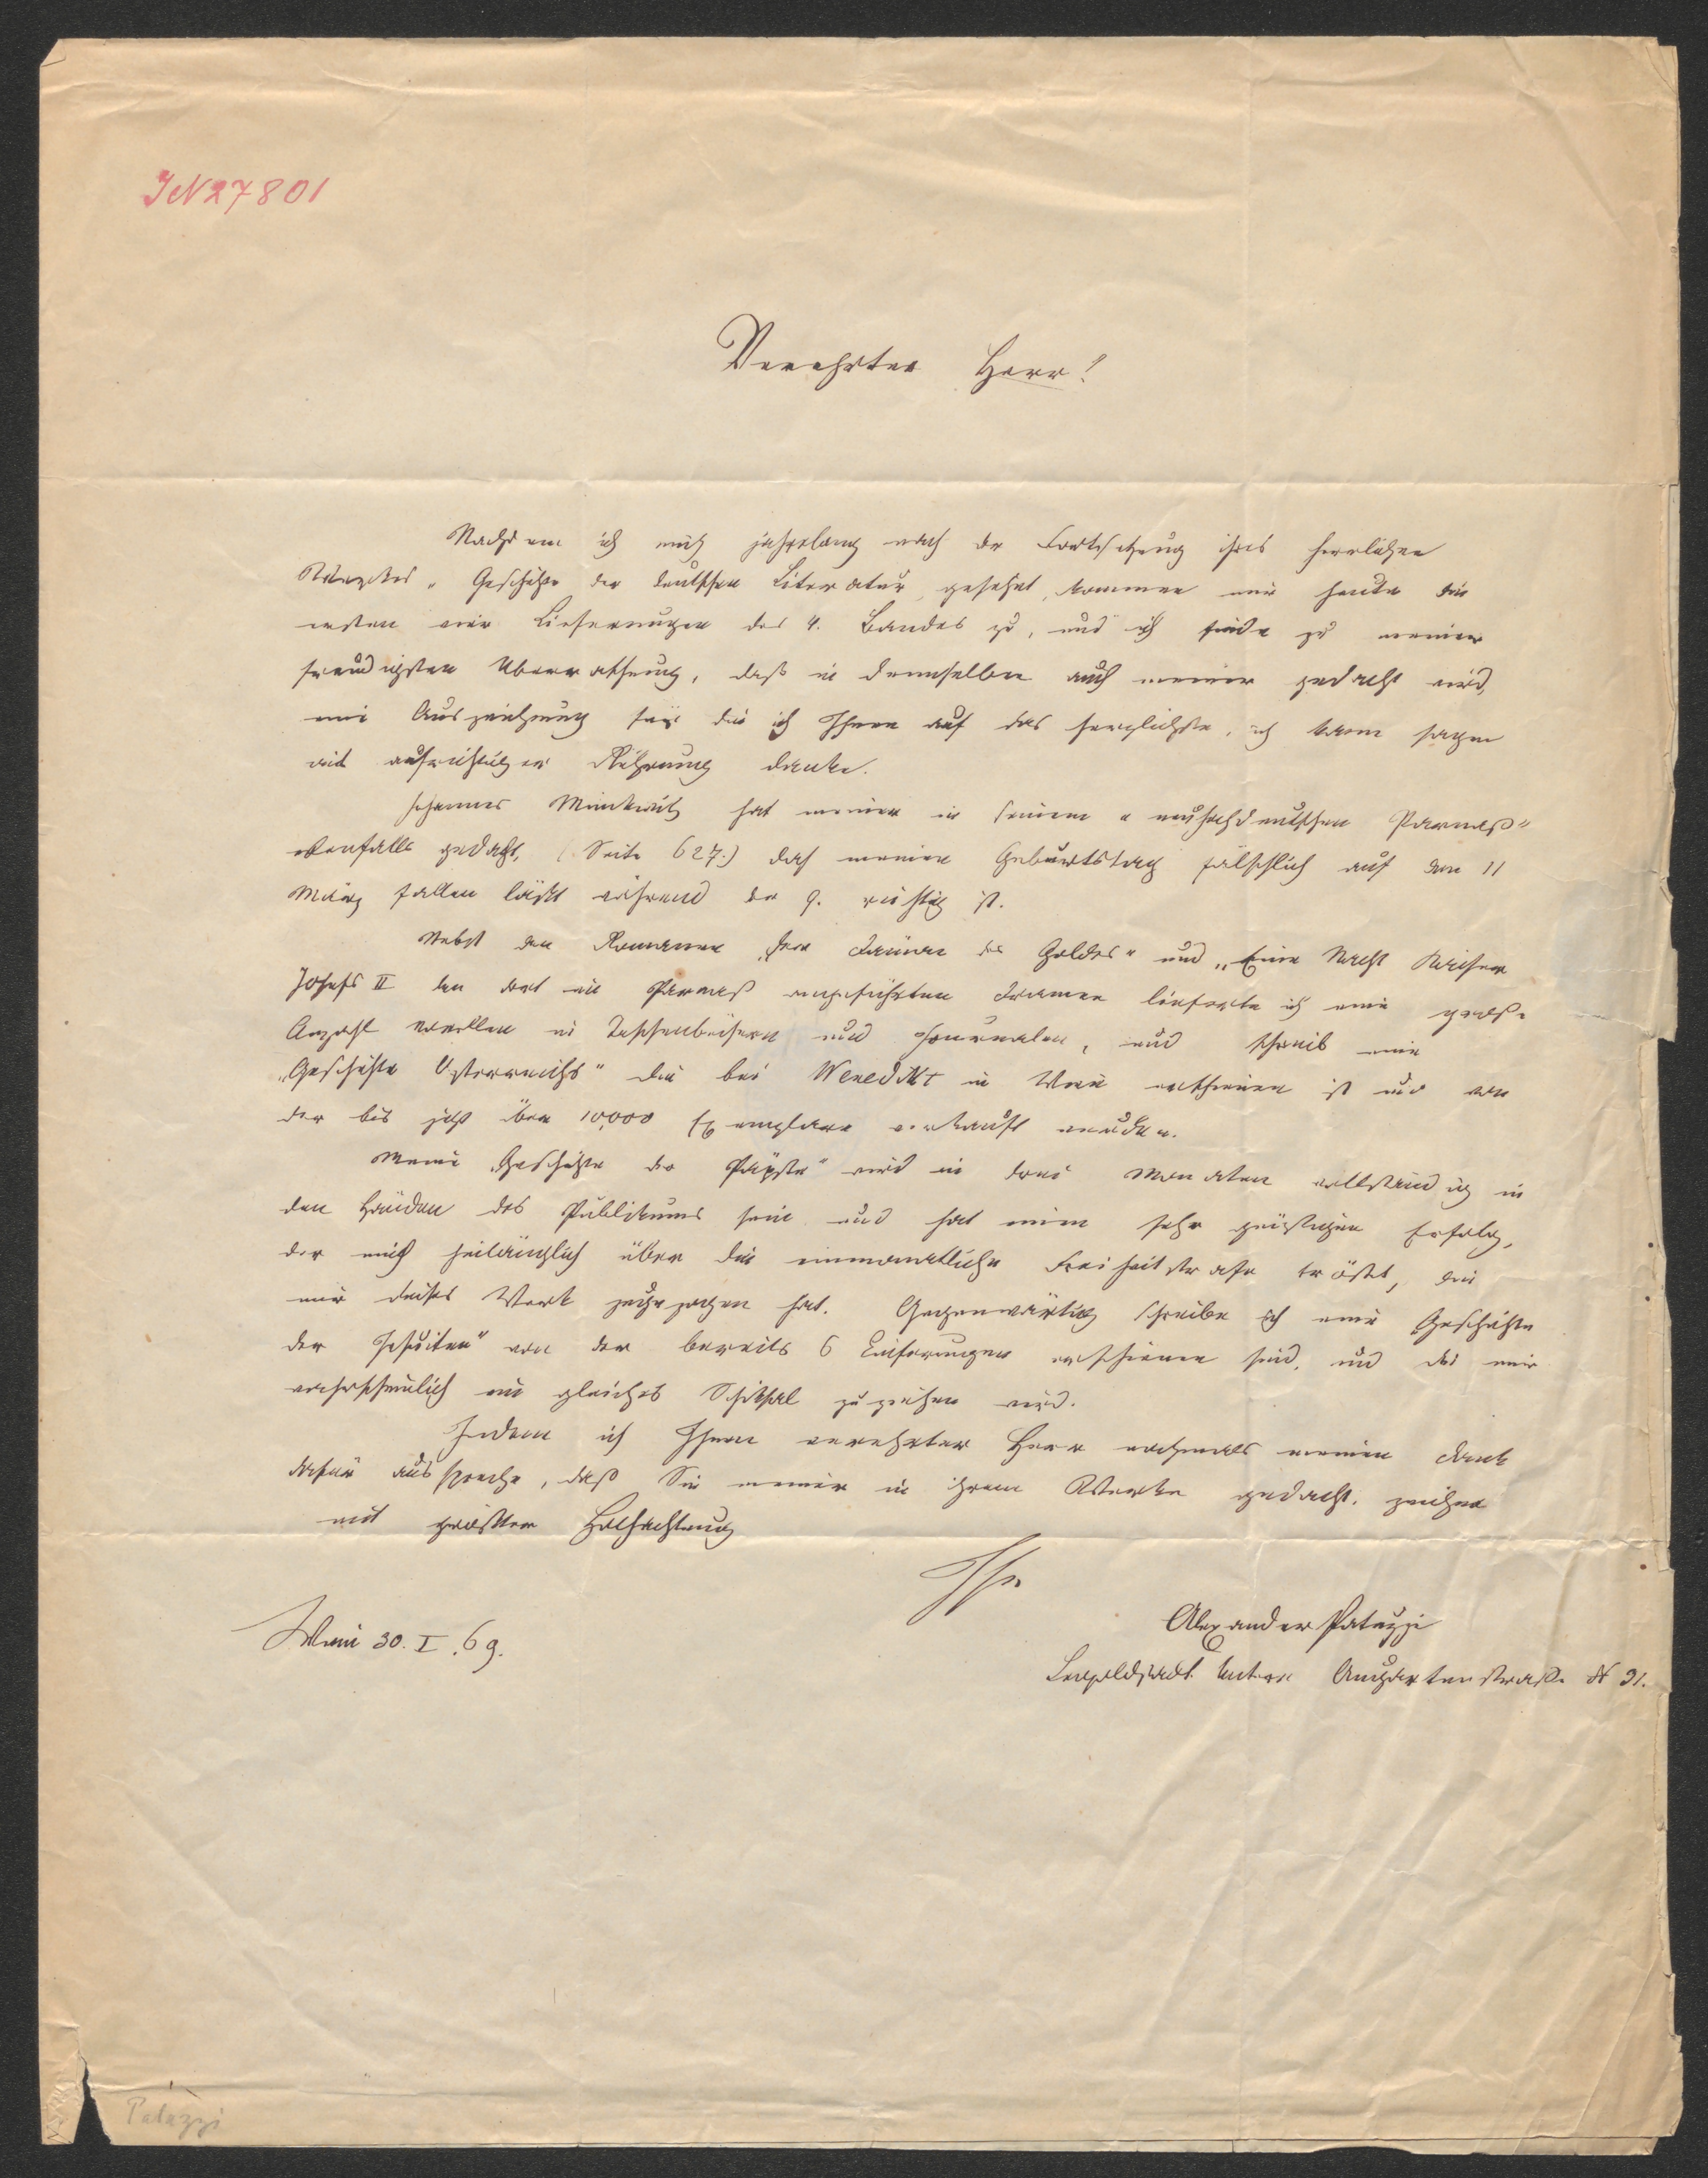 IN 27801
Verehrter Herr!
Nachdem ich mich jahrelang nach der Fortsetzung ihres herrlichen
Werkes „Geschichte der deutschen Literatur, gesehnt, kommen mir heute die
ersten vier Lieferungen des 4. Bandes zu, und ich finde zu meiner
freudigsten Überraschung, daß in demselben auch meiner gedacht wird,
eine Auszeichnung für die ich Ihnen auf das herzlichste, ich kann sagen
mit aufrichtiger Rührung danke.
Johannes Minkwitz hat meiner in seinem „neuhochdeutschen Parnaß“
ebenfalls gedacht, (Seite 627.) doch meinen Geburtstag fälschlich auf den 11
März fallen läßt während der 9. richtig ist.
Nebst den Romanen „Der Dämon des Goldes“ und „Eine Nacht Kaiser
Josefs II den dort im Parnaß angeführten Dramen lieferte ich eine große
Anzahl Novellen in Taschenbüchern und Journalen, und schrieb eine
„Geschichte Österreichs“ die bei Wenedikt in Wien erschienen ist und von
der bis jetzt über 10,000 Exemplare verkauft wurden.
Meine „Geschichte der Päpste“ wird in drei Monaten vollständig in
den Händen des Publikums sein und hat einen sehr günstigen Erfolg,
der mich hinlänglich über die einmonatliche Freiheitstrafe tröstet, die
mir dieses Werk zugezogen hat. Gegenwärtig schreibe ich eine „Geschichte
der Jesuiten“ von der bereits 6 Lieferungen erschienen sind, und die mir
wahrscheinlich ein gleiches Schicksal zuziehen wird.
Indem ich Ihnen verehrter Herr nochmals meinen Dank
dafür ausspreche, daß Sie meiner in ihrem Werke gedacht, zeichne
mit größter Hochachtung
Ihr
Alexander Patuzzi
Wien 30. I. 69.
Leopoldstadt untere Augartenstraße N 31.
Patuzzi